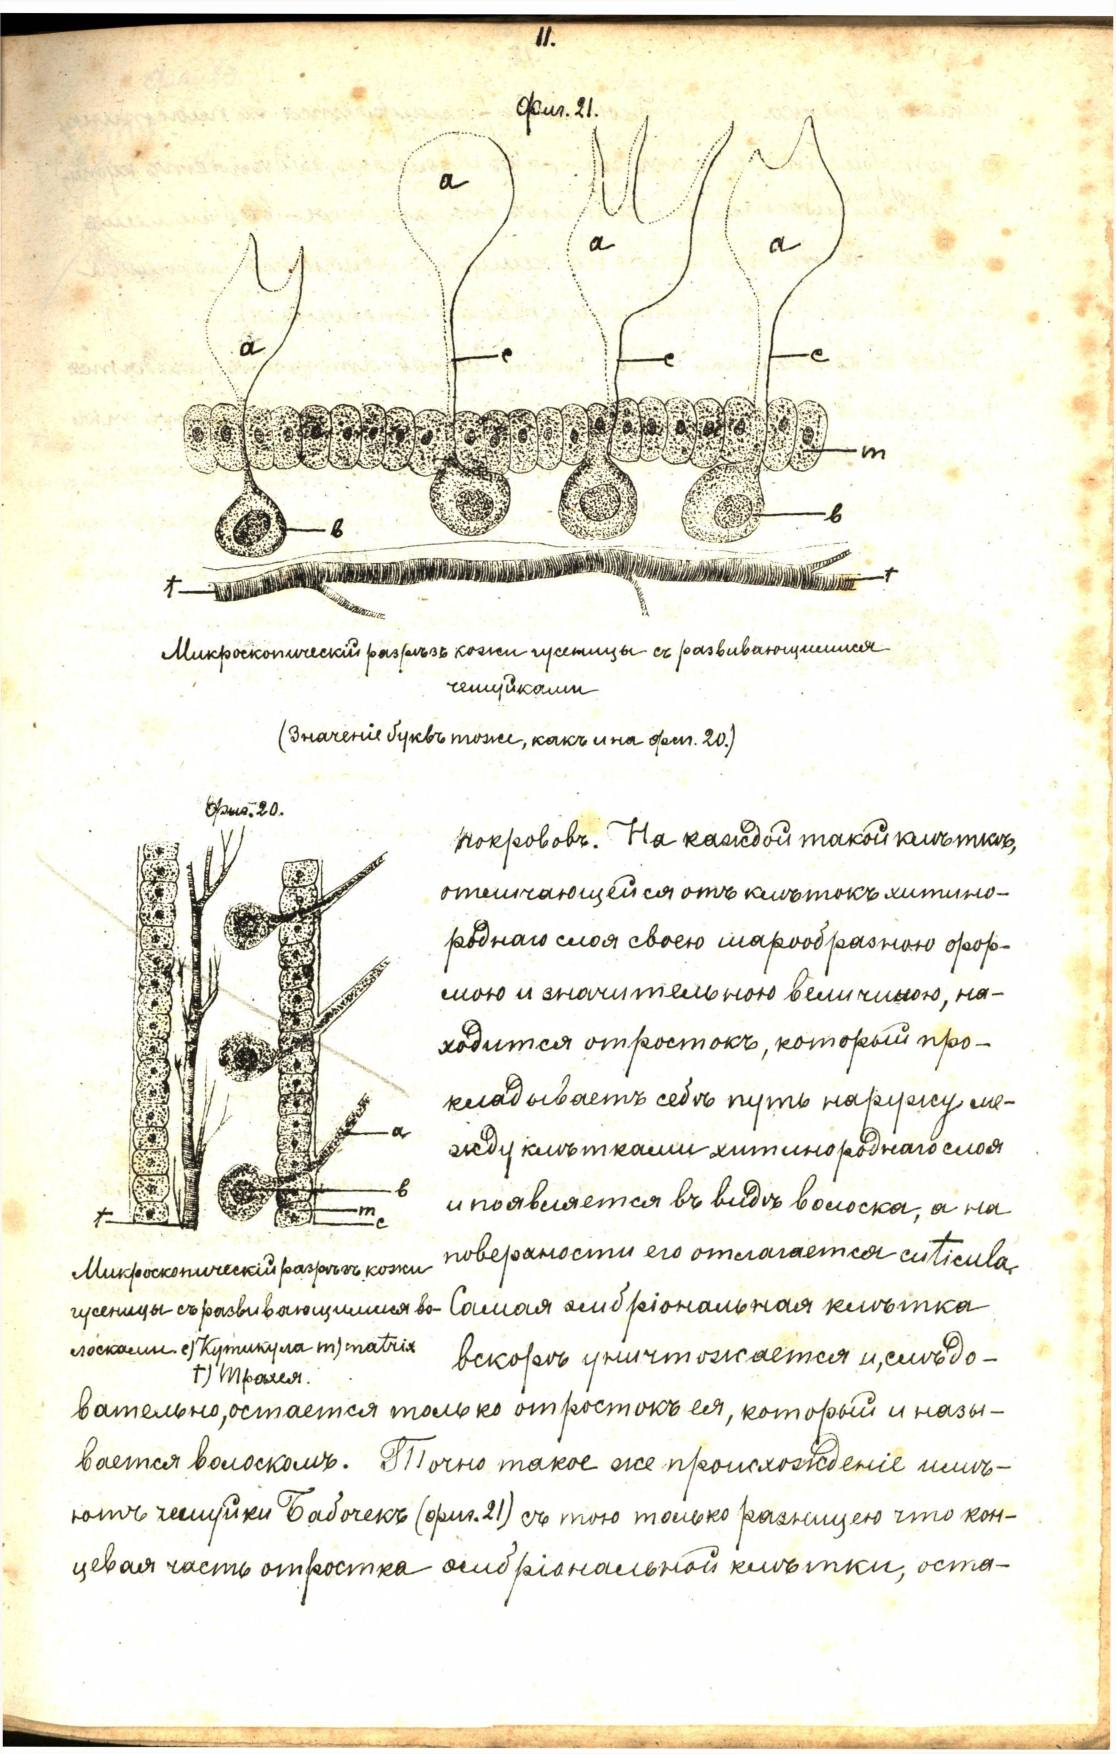 11.
Фиг. 21.
a
a
a
a
c
c
c
m
в
в
t
t
Микроскопическій разрѣзъ кожи гусеницы съ развивающимися
чешуйками
(Значеніе буквъ тоже, какъ и на фиг. 20.)
Фиг. 20.
a
в
m
c
t
Микроскопическій разрѣзъ кожи
гусеницы съ развивающимися во-
лосками. c) Кутикула m) matrix
t) Трахея.
покрововъ. На каждой такой клѣткѣ,
отличающейся отъ клѣтокъ хитино-
роднаго слоя своею шарообразною фор-
мою и значительною величиною, на-
ходится отростокъ, который про-
кладываетъ себѣ путь наружу ме-
жду клѣтками хитинороднаго слоя
и появляется въ видѣ волоска, а на
поверхности его отлагается cuticula.
Самая эмбріональная клѣтка
вскорѣ уничтожается и, слѣдо-
вательно, остается только отростокъ ея, который и назы-
вается волоскомъ. Точно такое же происхожденіе имѣ-
ютъ чешуйки Бабочекъ (фиг. 21) съ тою только разницею что кон-
цевая часть отростка эмбріональной клѣтки, оста-